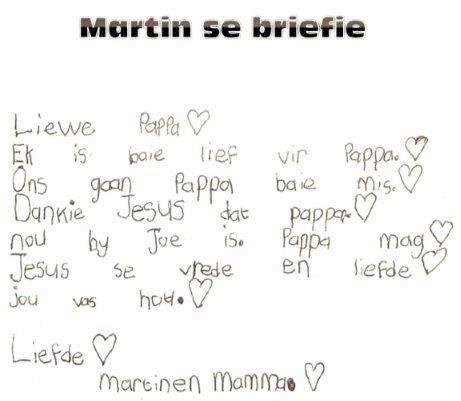 Martin se briefie
Liewe Pappa♡
Ek is baie lief vir Pappa.♡
Ons gaan Pappa baie mis.♡
Dankie Jesus dat pappa.♡
nou by Joe is. Pappa mag♡
Jesus se vrede en liefde♡
jou vas hou.♡
Liefde♡
martinen Mamma.♡